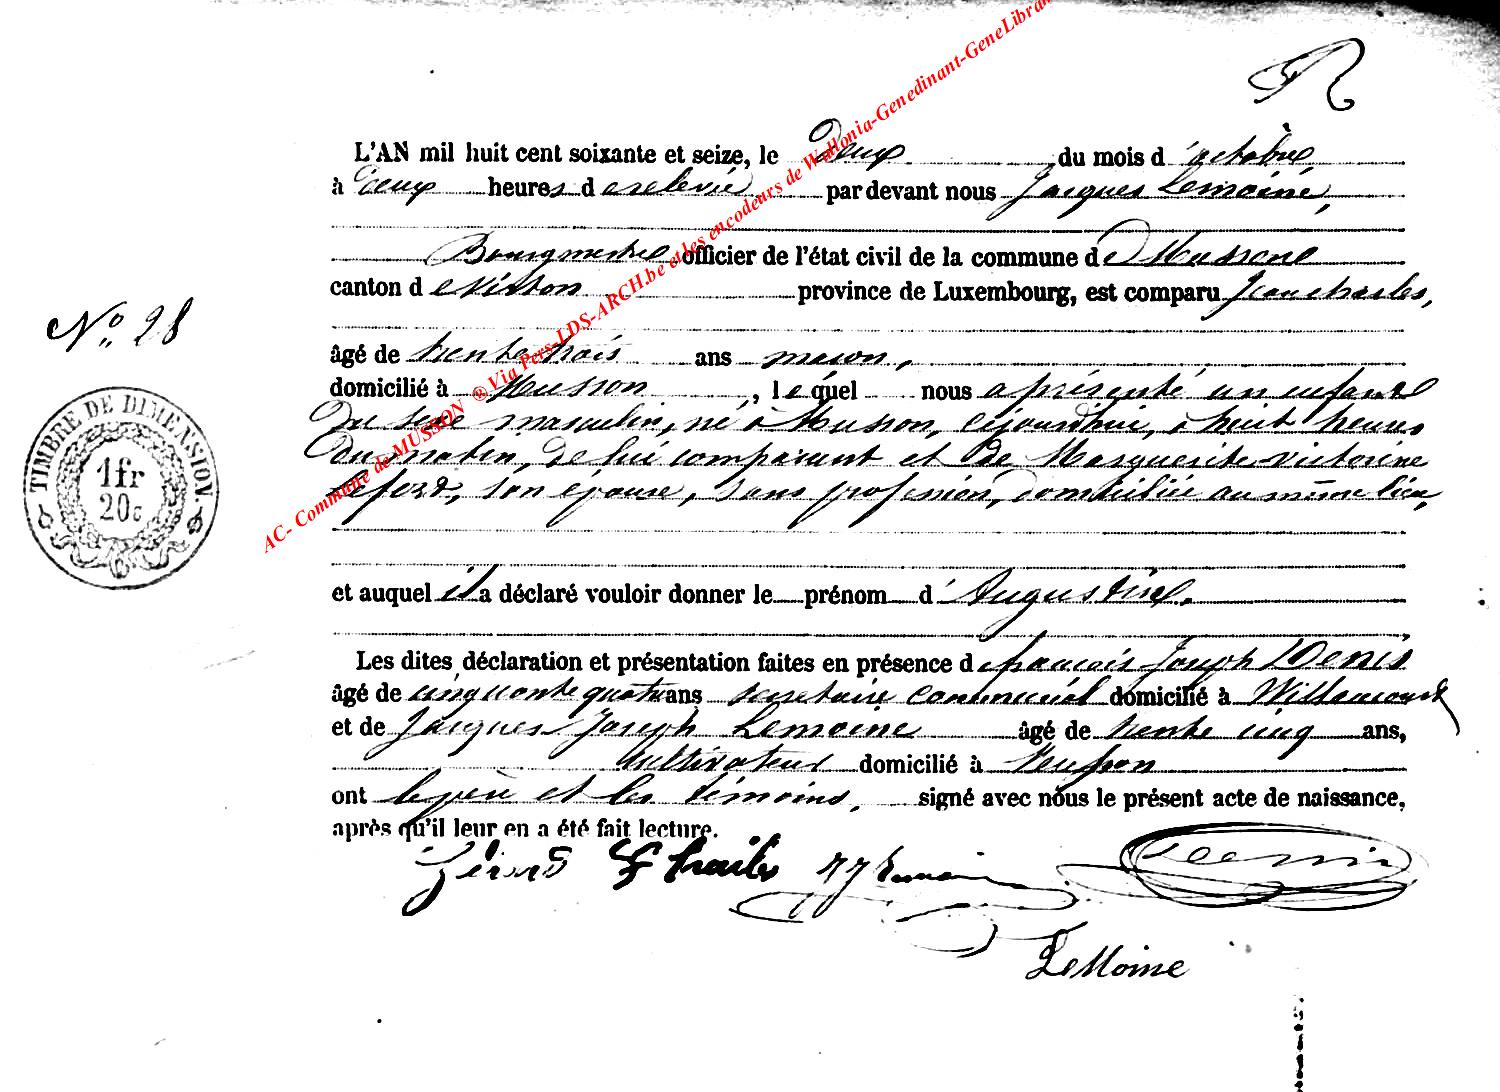 L'AN mil huit cent soixante et seize, le Deux du mois d'octobre,
à deux heures de relevée par devant nous Jacques Lemoine,
Bourgmestre officier de l'état civil de la commune de Musson
canton de Virton province de Luxembourg, est comparu Jean charles,
N° 28
âgé de trente trois ans maçon,
domicilié à Musson, lequel nous a présenté un enfant
Du sexe masculin, né à Musson, cejourd'hui, à huit heures
Du matin, De lui comparant et De Marguerite victorine
son épouse, sans profession, domiciliée au même lieu,
TIMBRE DE DIMENSION
1fr
20c
et auquel il a déclaré vouloir donner le prénom d'Augustin.
Les dites déclaration et présentation faites en présence de francois Joseph Denis
âgé de cinquante quatre ans secretaire communal domicilié à Willancourt
et de Jacques Joseph Lemoine âgé de trente cinq ans,
cultivateur domicilié à Musson
ont le père et les témoins, signé avec nous le présent acte de naissance,
après qu'il leur en a été fait lecture.
JJ Lemoine Denis
LeMoine
AC- Commune de MUSSON ® Via Pers-LDS-ARCH.be et les encodeurs de Wallonia-Genedinant-GeneLibra